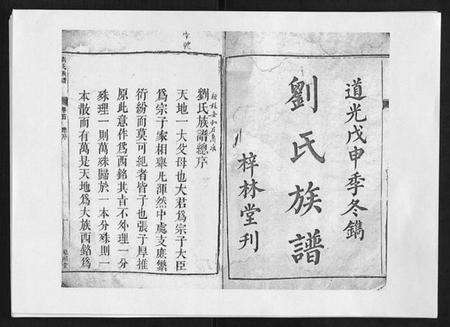 道光戊申季冬鐫
劉氏族譜
梓林堂刊
劉氏族譜總序
天地一大父母也大君為宗子大臣
為宗子家相舉凡渾然中處支庶繁
衍紛而莫可紀者皆子也張子厚推
原此意作為西銘其言不外理一分
殊理一則萬殊歸於一本分殊則一
本散而有萬是天地為大族西銘為